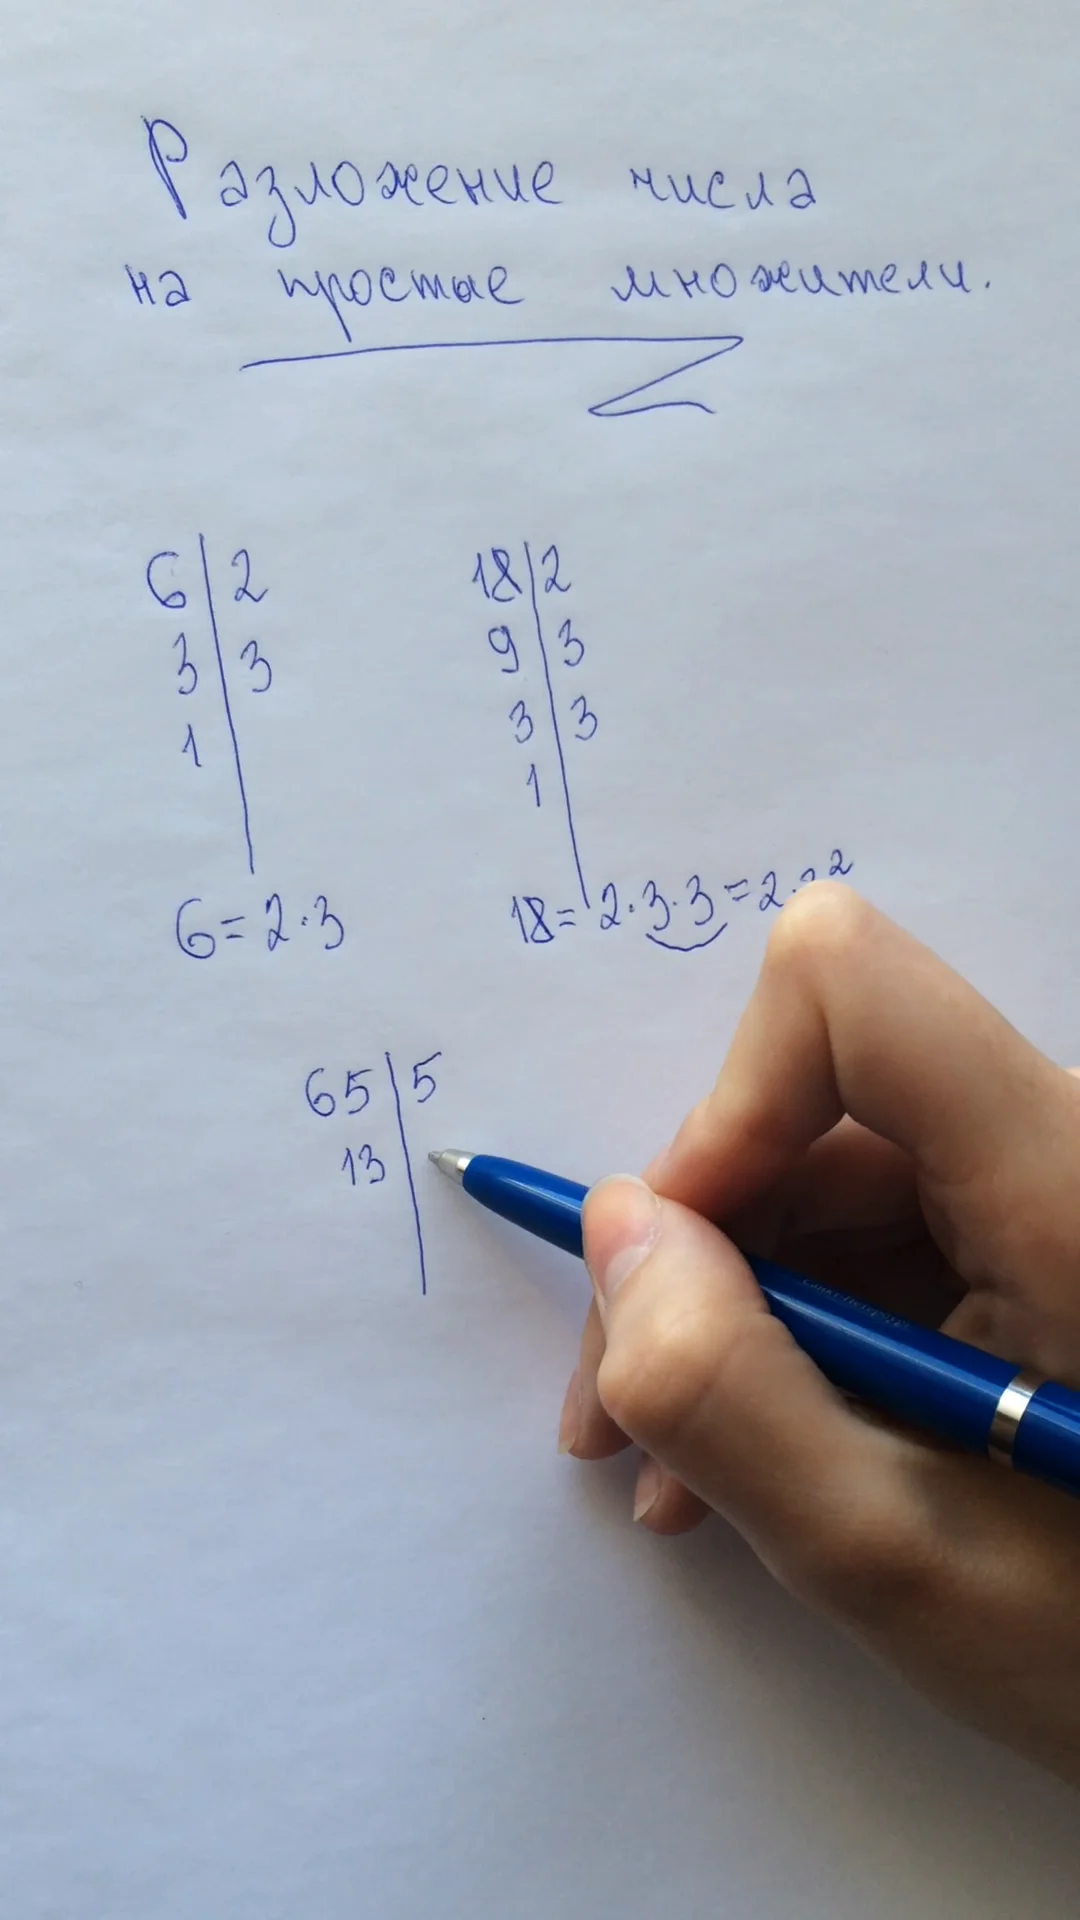 Разложение числа
на простые множители.
6 | 2
3 | 3
1 |
6 = 2 · 3
18 | 2
9 | 3
3 | 3
1 |
18 = 2 · 3 · 3 = 2 ·
65 | 5
13 |